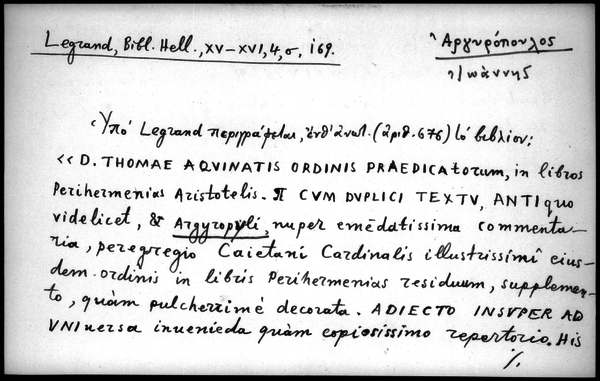 Legrand, Bibl. Hell., XV–XVI, 4, σ. 169.
Ἀργυρόπουλος
Ἰωάννης
Ὑπό Legrand περιγράφεται, ἐνθ' ἀνωτ. (ἀριθ. 676) τό βιβλίον:
«D. THOMAE AQVINATIS ORDINIS PRAEDICatorum, in libros
Perihermenias Aristotelis. CVM DVPLICI TEXTV, ANTIquo
videlicet, & Argyropyli, nuper emēdatissima commenta-
ria, peregregio Caietani Cardinalis illustrissimî eius-
dem ordinis in libris Perihermenias residuum, supplemen-
to, quàm pulcherrimè decorata. ADIECTO INSVPER AD
VNIuersa inuenieda quàm copiosissimo repertorio. His
./.